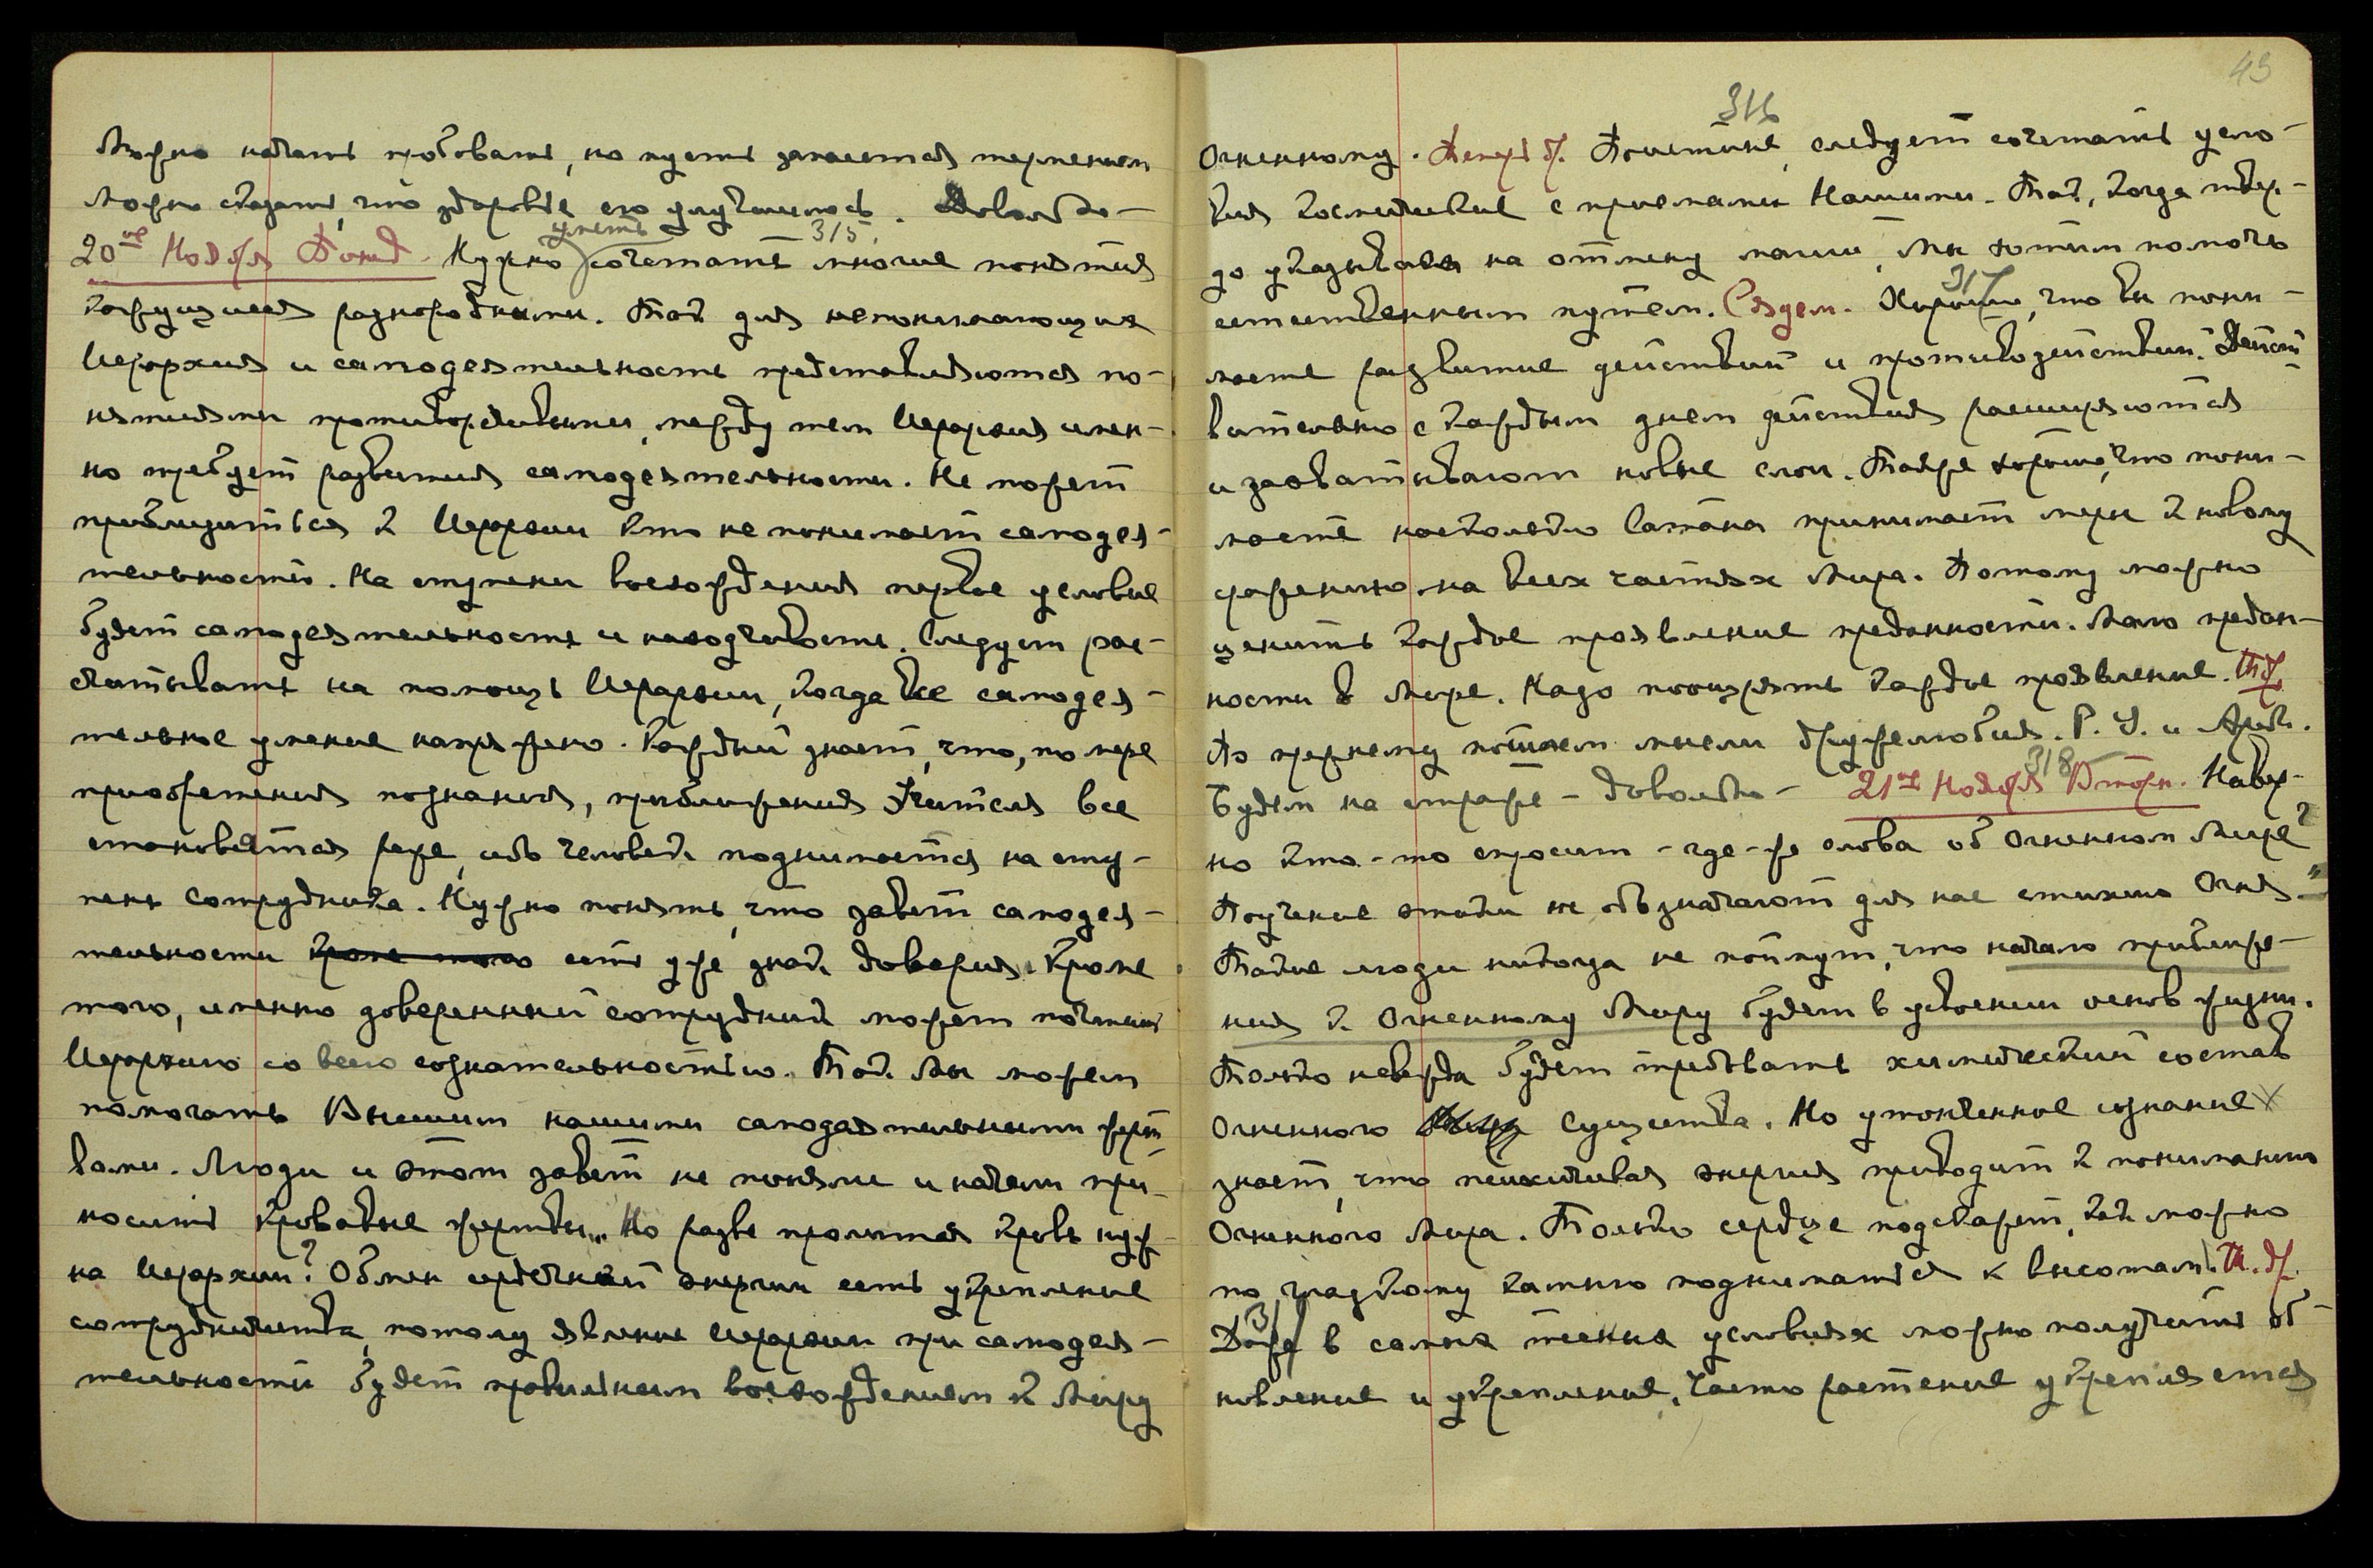 Можно начать пробовать, но пусть запасется терпением
Можно сказать, что здоровье его улучшилось. Довольно –
20ое Ноября Понед. Нужно уметь сочетать многие понятия 315.
кажущиеся разнородными. Так для непонимающих
Иерархия и самодеятельность представляются по-
нятиями противоречивыми, между тем Иерархия имен-
но требует развития самодеятельности. Не может
приблизиться к Иерархии кто не понимает самодея-
тельности. На ступени восхождения первое условие
будет самодеятельность и находчивость. Следует рас-
считывать на помощь Иерархии, когда все самодея-
тельное умение напряжено. Каждый знает, что, по мере
приобретения познания, приближения Учителя все
становятся реже, ибо человек поднимается на сту-
пень Сотрудника. Нужно понять, что завет самодея-
тельности кроме того есть уже знак доверия. Кроме
того, именно доверенный сотрудник может почитать
Иерархию со всею сознательностью. Так Мы можем
помогать Высшим нашими самодеятельными жерт-
вами. Люди и этот завет не поняли и начали при-
носить кровавые жертвы... Но разве пролитая кровь нуж-
на Иерархии? Обмен сердечной энергии есть укрепление
сотрудничества, потому явление Иерархии при самодея-
тельности будет правильным восхождением к Миру
43
316
Огненному. Поистине, следует сочетать усло-
вия космические с приемами Нашими. Так, когда твер-
до указываем на отмену, Мы хотим помочь
естественным путем. Сядем. Хорошо, что вы пони- 317
маете развитие действий и противодействий. Дейст-
вительно с каждым днем действия расширяются
и захватывают новые слои. Также хорошо, что пони-
маете насколько Сатана принимает меры к новому
сражению на всех частях Мира. Потому можно
ценить каждое проявление преданности. Мало предан-
ности в Мире. Надо поощрять каждое проявление.
По прежнему пошлем мысли дружелюбия.
Будем на страже – Довольно – 21ое Ноября Вторн. Навер- 318
но кто-то спросит – где же слова об Огненном Мире?
Поучение этики не обозначают для нас стихию Огня. –"
Такие люди никогда не поймут, что начало приближе-
ния к Огненному Миру будет в усвоении основ жизни.
Только невежда будет требовать химический состав
Огненного Существа. Но утонченное сознание
знает, что психическая энергия приводит к пониманию
Огненного Мира. Только сердце подскажет, как можно
по гладкому камню подниматься к высотам.
Даже в самых тесных условиях можно получить об-
новление и укрепление. Часто растение укрепляется